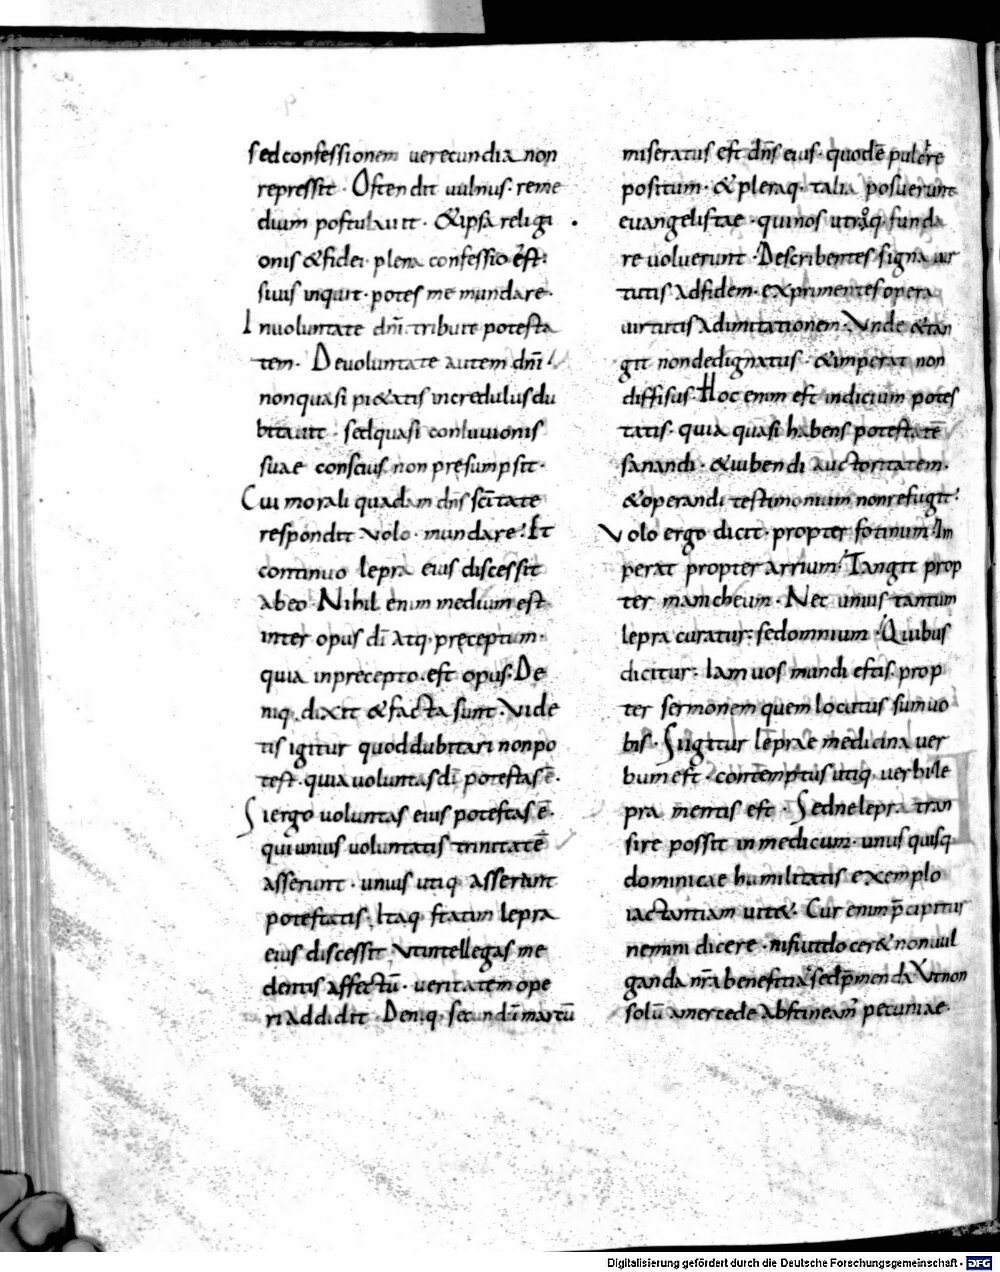 sed confessionem uerecundia non
repressit · Ostendit uulnus · reme
dium postulauit · & ipsa religi
onis & fidei · plena confessio ēst ·
siuis inquit · potes me mundare ·
Inuoluntate dn̄i tribuit potesta
tem · Deuoluntate autem dn̄i
nonquasi pi&atis incredulus du
bitauit · sedquasi conluuionis
suae conscius non pręsumpsit ·
Cui morali quadam dn̄s sc̄itate
respondit volo · mundare · Et
continuo lepra eius discessit
abeo · Nihil enim medium est
inter opus dī atq· pręceptum ·
quia inprecepto · est opus · De
niq · dixit & facta sunt · Vide
tis igitur quod dubitari non po
test · quia uoluntas dī potestas ē ·
Siergo uoluntas eius potestas ē ·
qui unius uoluntatis trinitatē
asserunt · unius utiq asserunt
potestatis · Itaq statim lepra
eius discessit · Vt intellegas me
dentis affectū · ueritatem ope
ri addidit · Deniq · secund·ī martū
miseratus est dn̄s eius · quod ē pulcre
positum · & pleraq · talia posuerunt
euangelistae · quinos utroq· funda
re uoluerunt · Describentes signa uir
tutis adfidem · exprimentes opera
uirtutis adimitationem · Vnde & tan
git non dedignatus · & imperat non
diffisus · Hoc enim est indicium potes
tatis · quia quasi habens potestatē
sanandi · & iubendi auctoritatem ·
& operandi testimonium nonrefugit ·
Volo ergo dicit · propter fotinum · Im
perat propter arrium · Tangit prop
ter manicheum · Nec unius tantum
lepra curatur · sedomnium · Quibus
dicitur · Iam uos mundi estis · prop
ter sermonem quem locutus sum uo
bis · Siigitur leprae medicina uer
bum est · contemptus utiq uerbi le
pra mentis est · Sed ne lepra tran
sire possit in medicum · unus quisq
dominicae humilitatis exemplo
iactantiam uit& · Cur enim p̄cipitur
nemini dicere · nisi ut docer& non uul
ganda nr̄a beneficia · sed p̄menda Vt non
solū a mercede abstineam̄ pecuniae ·
Digitalisierung gefördert durch die Deutsche Forschungsgemeinschaft - DFG